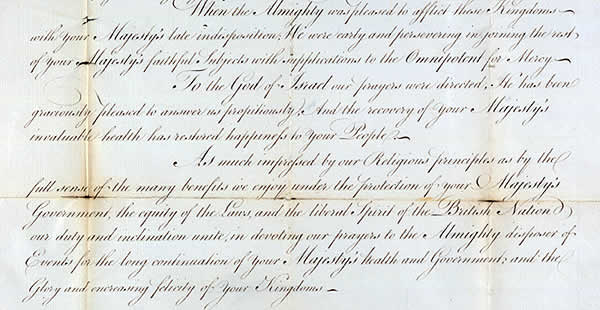 When the Almighty was pleased to afflict these Kingdoms
with your Majesty's late indisposition; We were early and persevering in joining the rest
of your Majesty's faithful Subjects with supplications to the Omnipotent for Mercy
To the God of Israel our prayers were directed, He has been
graciously pleased to answer us propitiously; And the recovery of your Majesty's
invaluable health has restored happiness to your People.
As much impressed by our Religious principles as by the
full sense of the many benefits we enjoy under the protection of your Majesty's
Government, the equity of the Laws, and the liberal Spirit of the British Nation
our duty and inclination unite, in devoting our prayers to the Almighty disposer of
Events for the long continuation of your Majesty's health and Government; and the
Glory and encreasing felicity of your Kingdoms